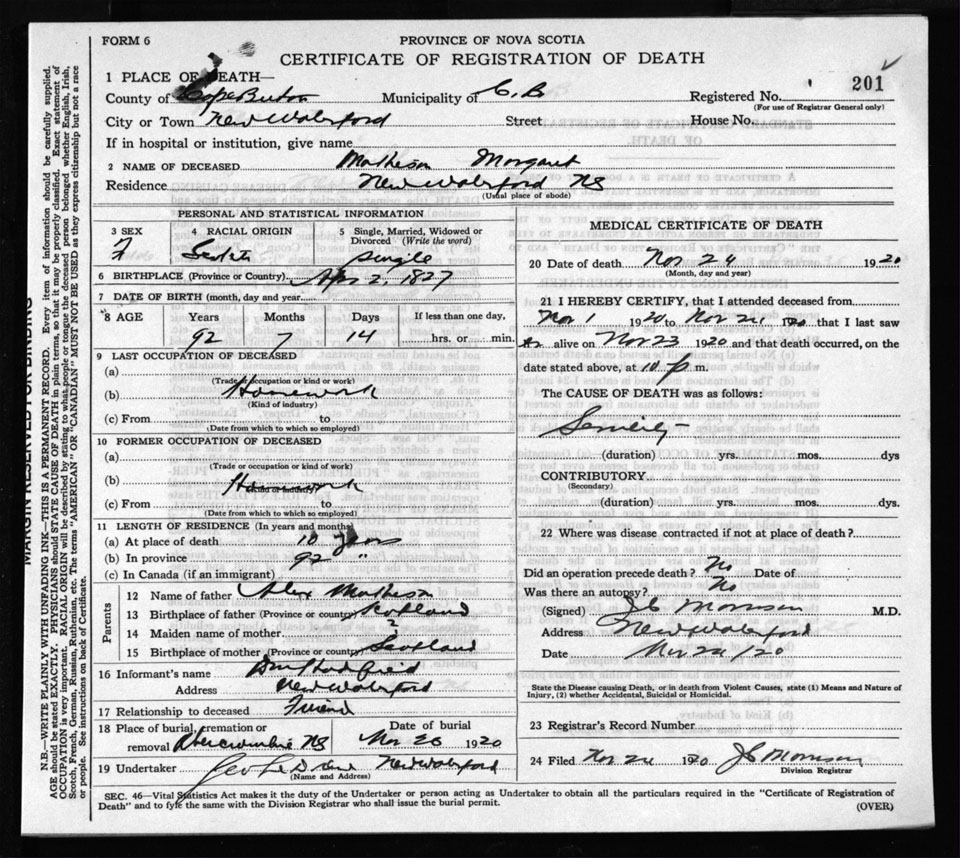 FORM 6
PROVINCE OF NOVA SCOTIA
CERTIFICATE OF REGISTRATION OF DEATH
1 PLACE OF DEATH—
County of Cape Breton Municipality of C. B. Registered No. 201
(For use of Registrar General only)
City or Town New Waterford Street House No.
If in hospital or institution, give name
2 NAME OF DECEASED Matheson Margaret
Residence New Waterford NS
(Usual place of abode)
PERSONAL AND STATISTICAL INFORMATION
3 SEX 4 RACIAL ORIGIN 5 Single, Married, Widowed or
Divorced (Write the word)
F Scotch Single
6 BIRTHPLACE (Province or Country) Apr 2, 1827
7 DATE OF BIRTH (month, day and year)
8 AGE Years Months Days If less than one day,
92 7 14 hrs. or min.
9 LAST OCCUPATION OF DECEASED
(a)
(Trade or occupation or kind or work)
(b) Housework
(Kind of industry)
(c) From to
(Date from which to which so employed)
10 FORMER OCCUPATION OF DECEASED
(a)
(Trade or occupation or kind or work)
(b) Housework
(Kind of industry)
(c) From to
(Date from which to which so employed)
11 LENGTH OF RESIDENCE (In years and months)
(a) At place of death 10 years
(b) In province 92 "
(c) In Canada (if an immigrant)
Parents
12 Name of father Alex Matheson
13 Birthplace of father (Province or country) Scotland
14 Maiden name of mother ?
15 Birthplace of mother (Province or country) Scotland
16 Informant's name
Address New Waterford
17 Relationship to deceased Friend
18 Place of burial, cremation or Date of burial
removal Abercrombie NS Nov 26 1920
19 Undertaker New Waterford
(Name and Address)
MEDICAL CERTIFICATE OF DEATH
20 Date of death Nov 24 1920
(Month, day and year)
21 I HEREBY CERTIFY, that I attended deceased from
Nov 1 1920 to Nov 24, 1920 that I last saw
her alive on Nov 23 1920 and that death occurred, on the
date stated above, at 10 p. m.
The CAUSE OF DEATH was as follows:
Senility
(duration) yrs. mos. dys
CONTRIBUTORY
(Secondary)
(duration) yrs. mos. dys
22 Where was disease contracted if not at place of death?
Did an operation precede death? No Date of
Was there an autopsy? No
(Signed) J C Morrison M.D.
Address New Waterford
Date Nov 24/20
State the Disease causing Death, or in death from Violent Causes, state (1) Means and Nature of
Injury, (2) whether Accidental, Suicidal or Homicidal.
23 Registrar's Record Number
24 Filed Nov 24 1920 J C Morrison
Division Registrar
SEC. 46—Vital Statistics Act makes it the duty of the Undertaker or person acting as Undertaker to obtain all the particulars required in the "Certificate of Registration of
Death" and to fyle the same with the Division Registrar who shall issue the burial permit.
(OVER)
MARGIN RESERVED FOR BINDING
N.B.—WRITE PLAINLY WITH UNFADING INK—THIS IS A PERMANENT RECORD. Every item of information should be carefully supplied.
AGE should be stated EXACTLY. PHYSICIANS should STATE CAUSE OF DEATH in plain terms, so that it may be properly classified. Exact statement of
OCCUPATION is very important. RACIAL ORIGIN will be described by stating to what people or tongue the deceased person belonged whether English, Irish,
Scotch, French, German, Russian, Ruthenian, etc. The terms "AMERICAN" OR "CANADIAN" MUST NOT BE USED as they express citizenship but not a race
or people. See instructions on back of Certificate.